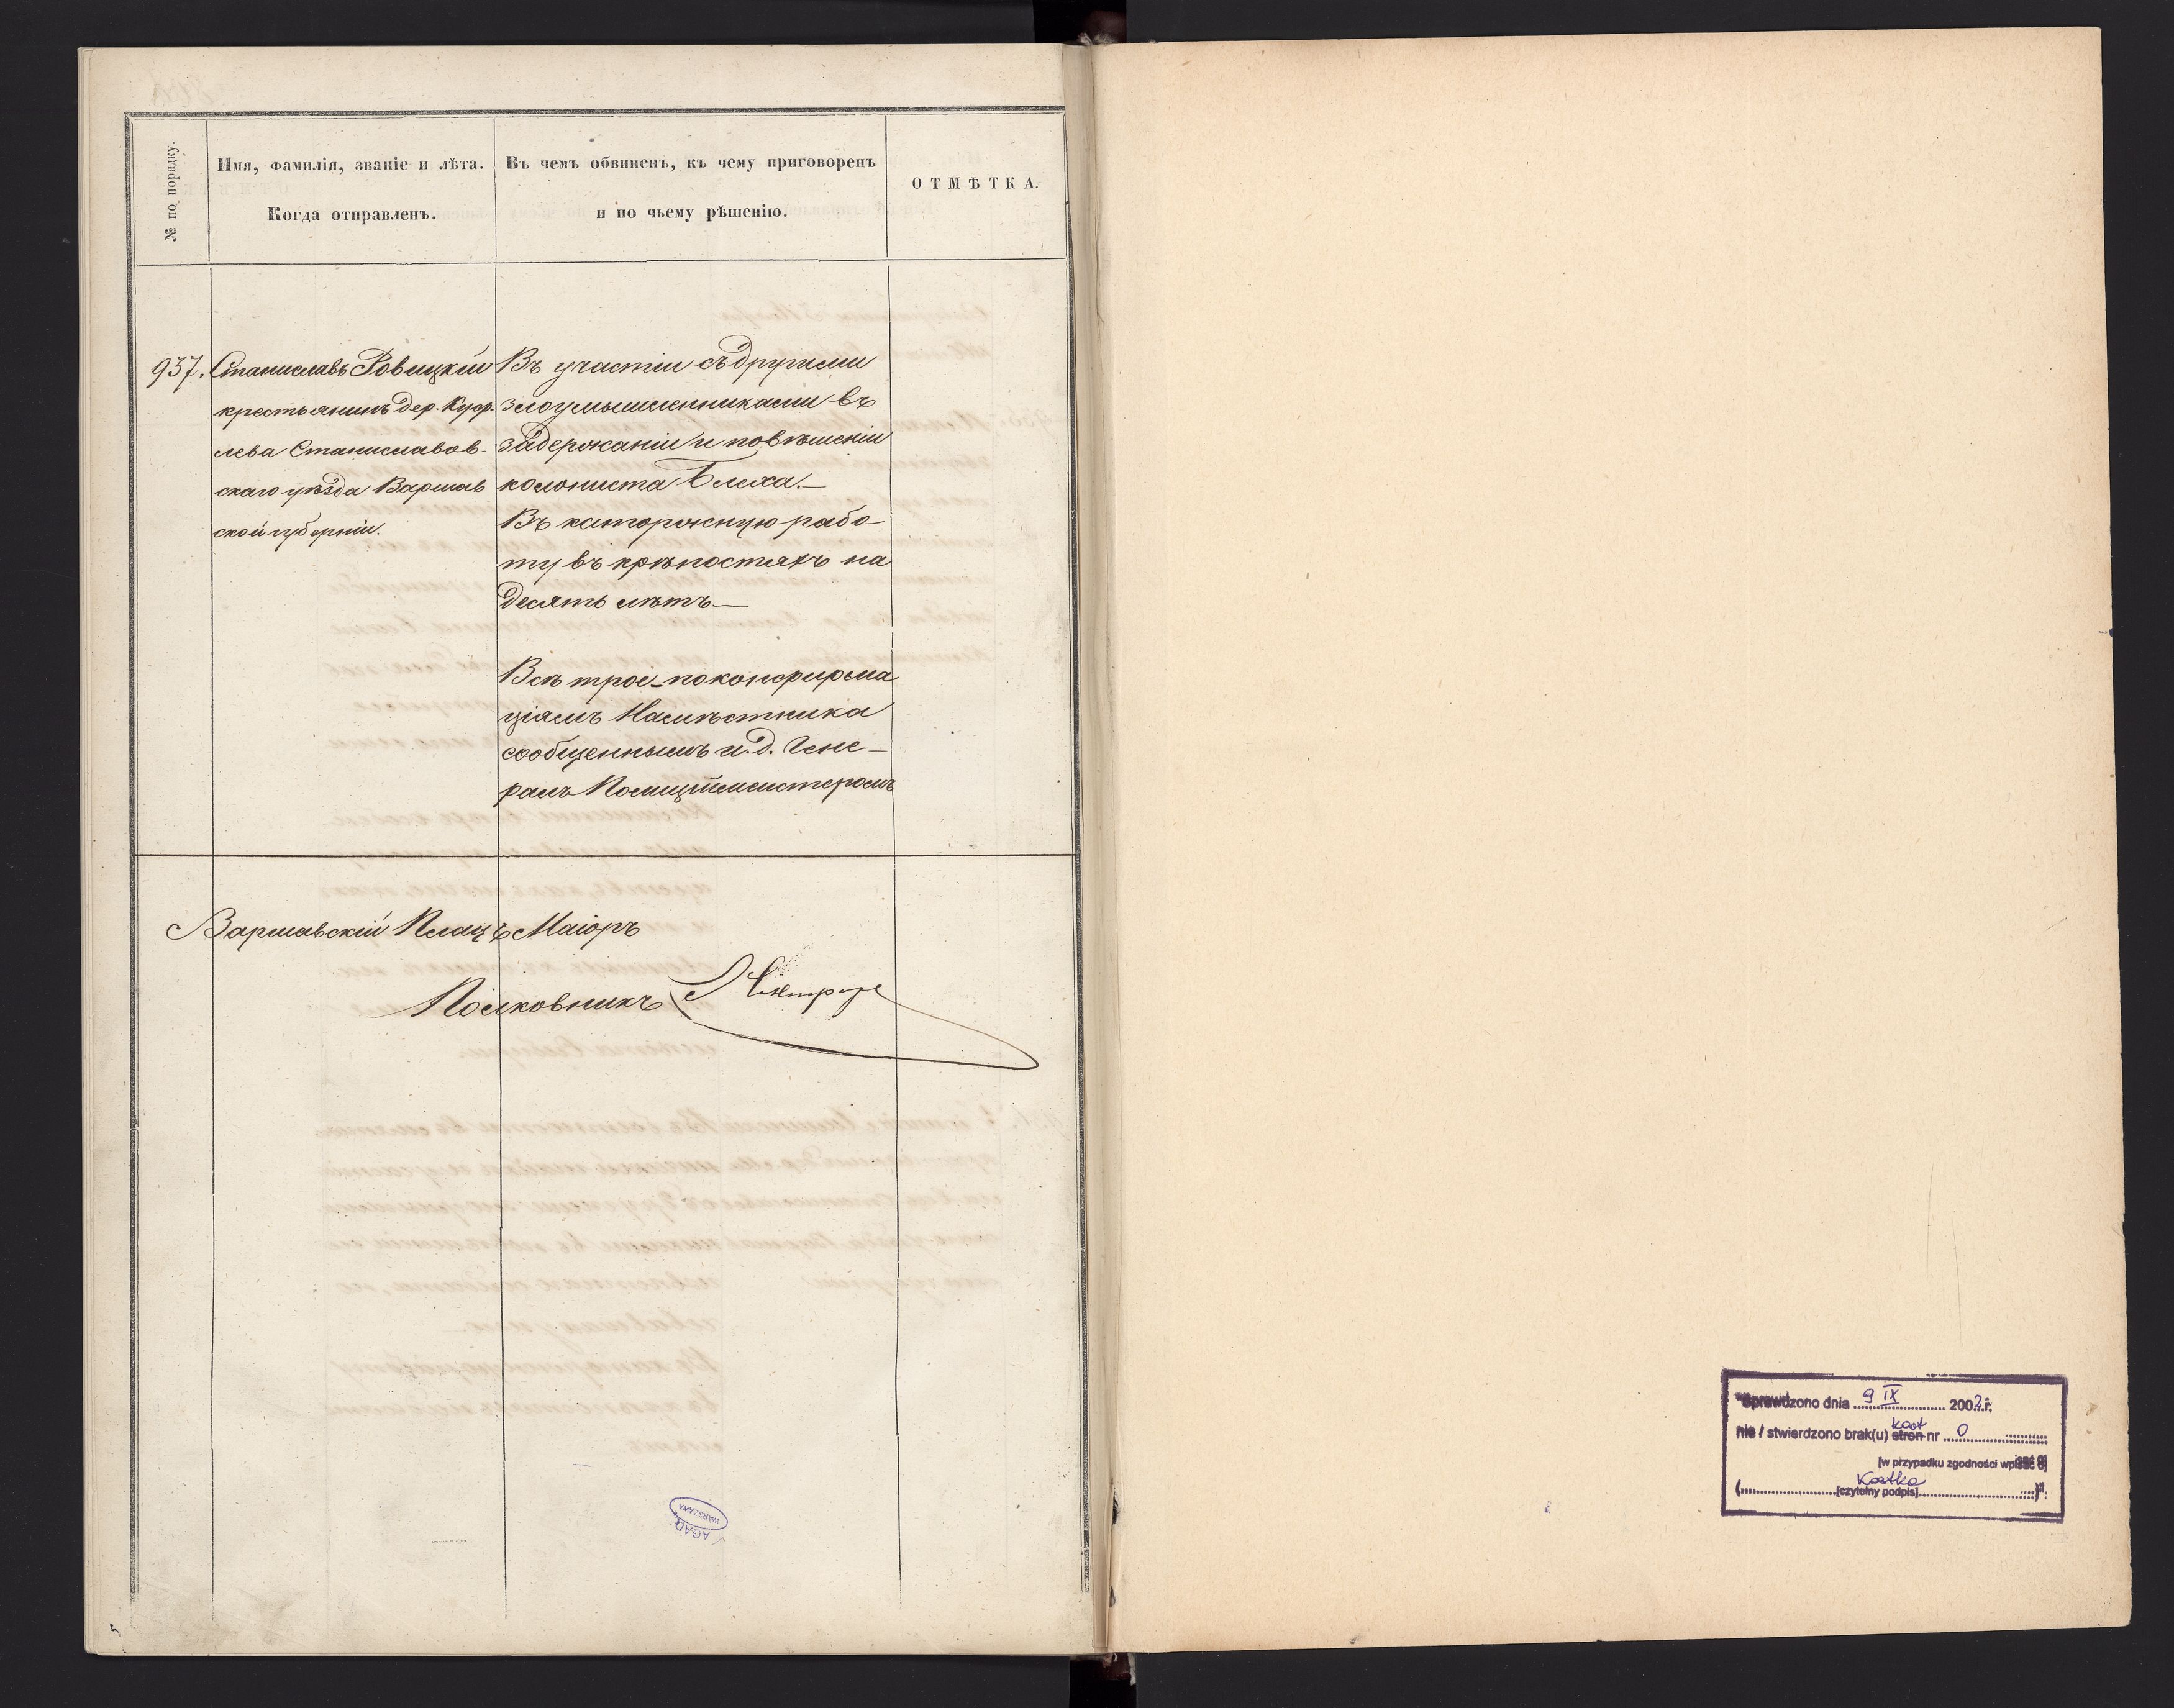 № по порядку.
Имя, фамилія, званіе и лѣта.
Когда отправленъ.
Въ чемъ обвиненъ, къ чему приговоренъ
и по чьему рѣшенію.
ОТМѢТКА.
937.
Станиславъ Ровицкій
крестьянинъ дер.
лева Станиславов-
скаго уѣзда Варшав
ской губерніи.
Въ участіи съ другими
злоумышленниками въ
задержаніи и повѣшеніи
колониста Блеха.—
Въ каторжную рабо-
ту въ крѣпостяхъ на
десять лѣтъ.—
Всѣ трое–по конфирма
ціямъ Намѣстника
сообщеннымъ и.д. Гене-
ралъ Полиціймейстеромъ
Варшавскій Плацъ Маіоръ
Полковникъ
AGAD
WARSZAWA
Sprawdzono dnia 9 IX 2002 r.
nie / stwierdzono brak(u) stron kart nr 0
[w przypadku zgodności wpisać 0]
Kostka
(czytelny podpis)